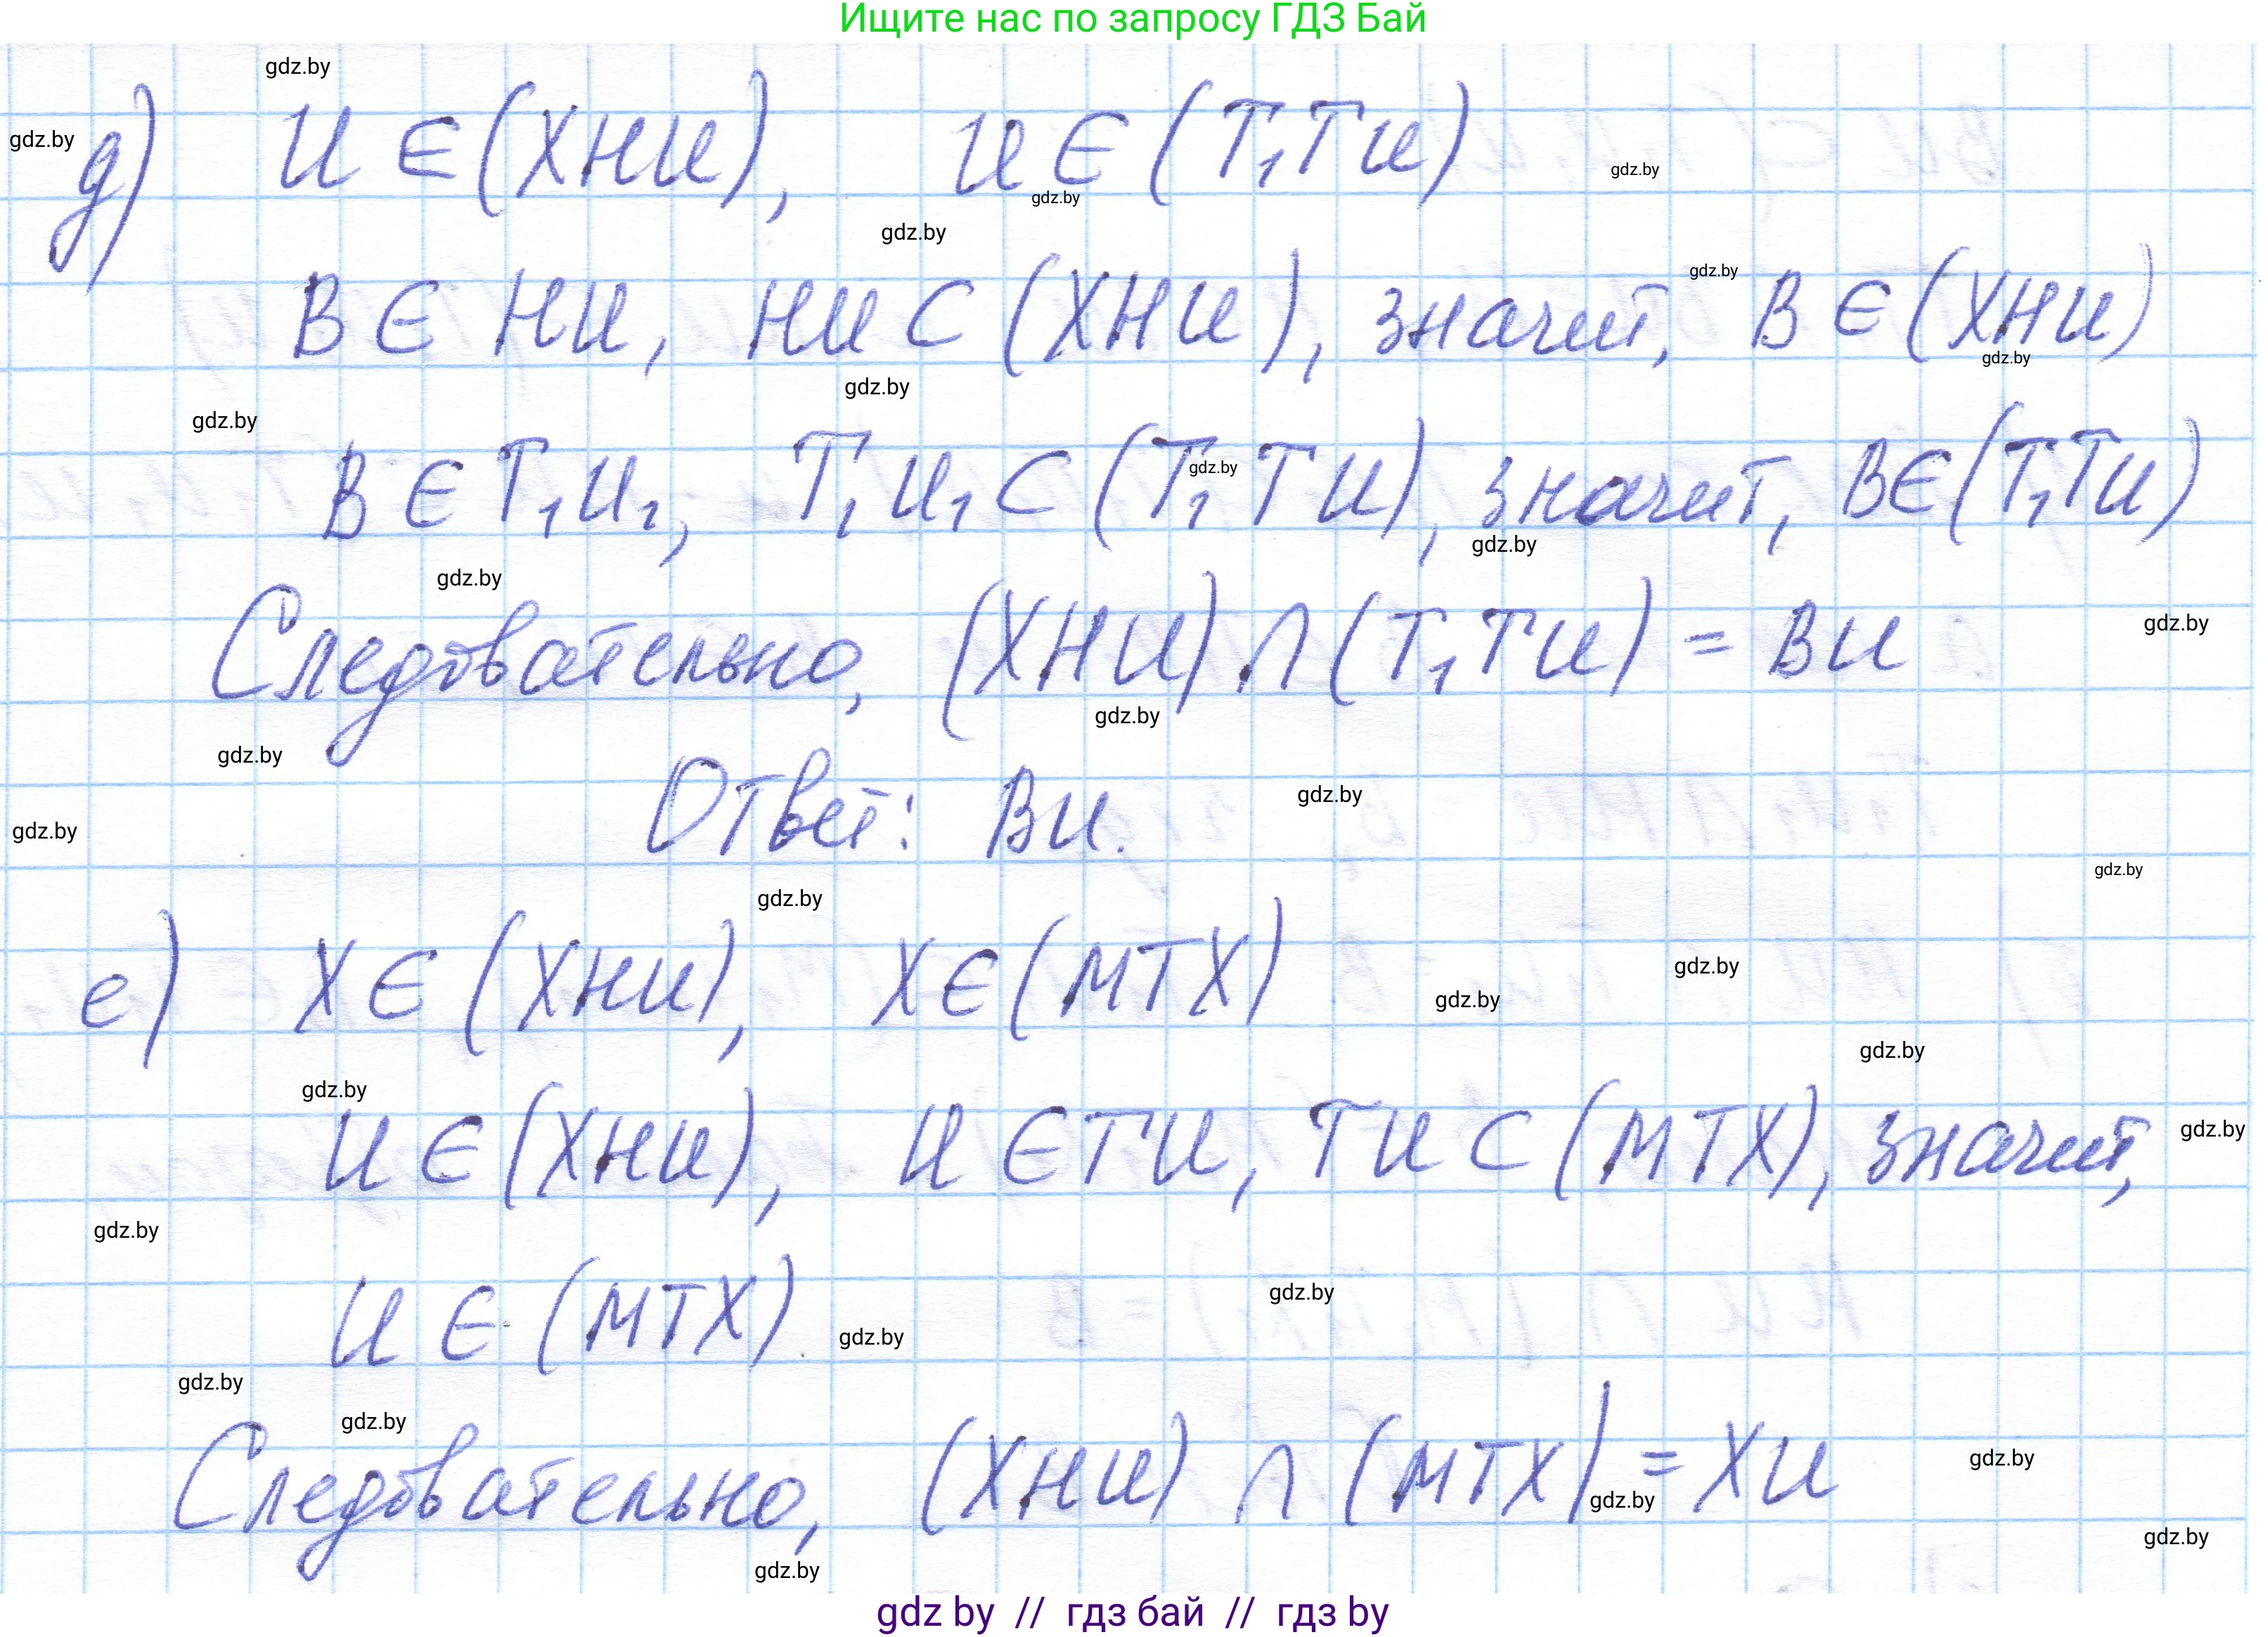 Ищите нас по запросу ГДЗ Бай
gdz.by
gdz.by
д) И ∈ (ХНИ), И ∈ (Т₁ТИ)
gdz.by
gdz.by
gdz.by
gdz.by
В ∈ НИ, НИ ⊂ (ХНИ), значит, В ∈ (ХНИ)
gdz.by
gdz.by
gdz.by
В ∈ Т₁И₁, Т₁И₁ ⊂ (Т₁ТИ), значит, В ∈ (Т₁ТИ)
gdz.by
gdz.by
gdz.by
gdz.by
Следовательно, (ХНИ) ∩ (Т₁ТИ) = ВИ
gdz.by
gdz.by
gdz.by
Ответ: ВИ.
gdz.by
gdz.by
gdz.by
е) Х ∈ (ХНИ), Х ∈ (МТХ)
gdz.by
gdz.by
gdz.by
gdz.by
И ∈ (ХНИ), И ∈ ТИ, ТИ ⊂ (МТХ), значит,
gdz.by
gdz.by
gdz.by
И ∈ (МТХ)
gdz.by
gdz.by
gdz.by
Следовательно, (ХНИ) ∩ (МТХ) = ХИ
gdz.by
gdz.by
gdz.by
gdz.by
gdz by // гдз бай // гдз by